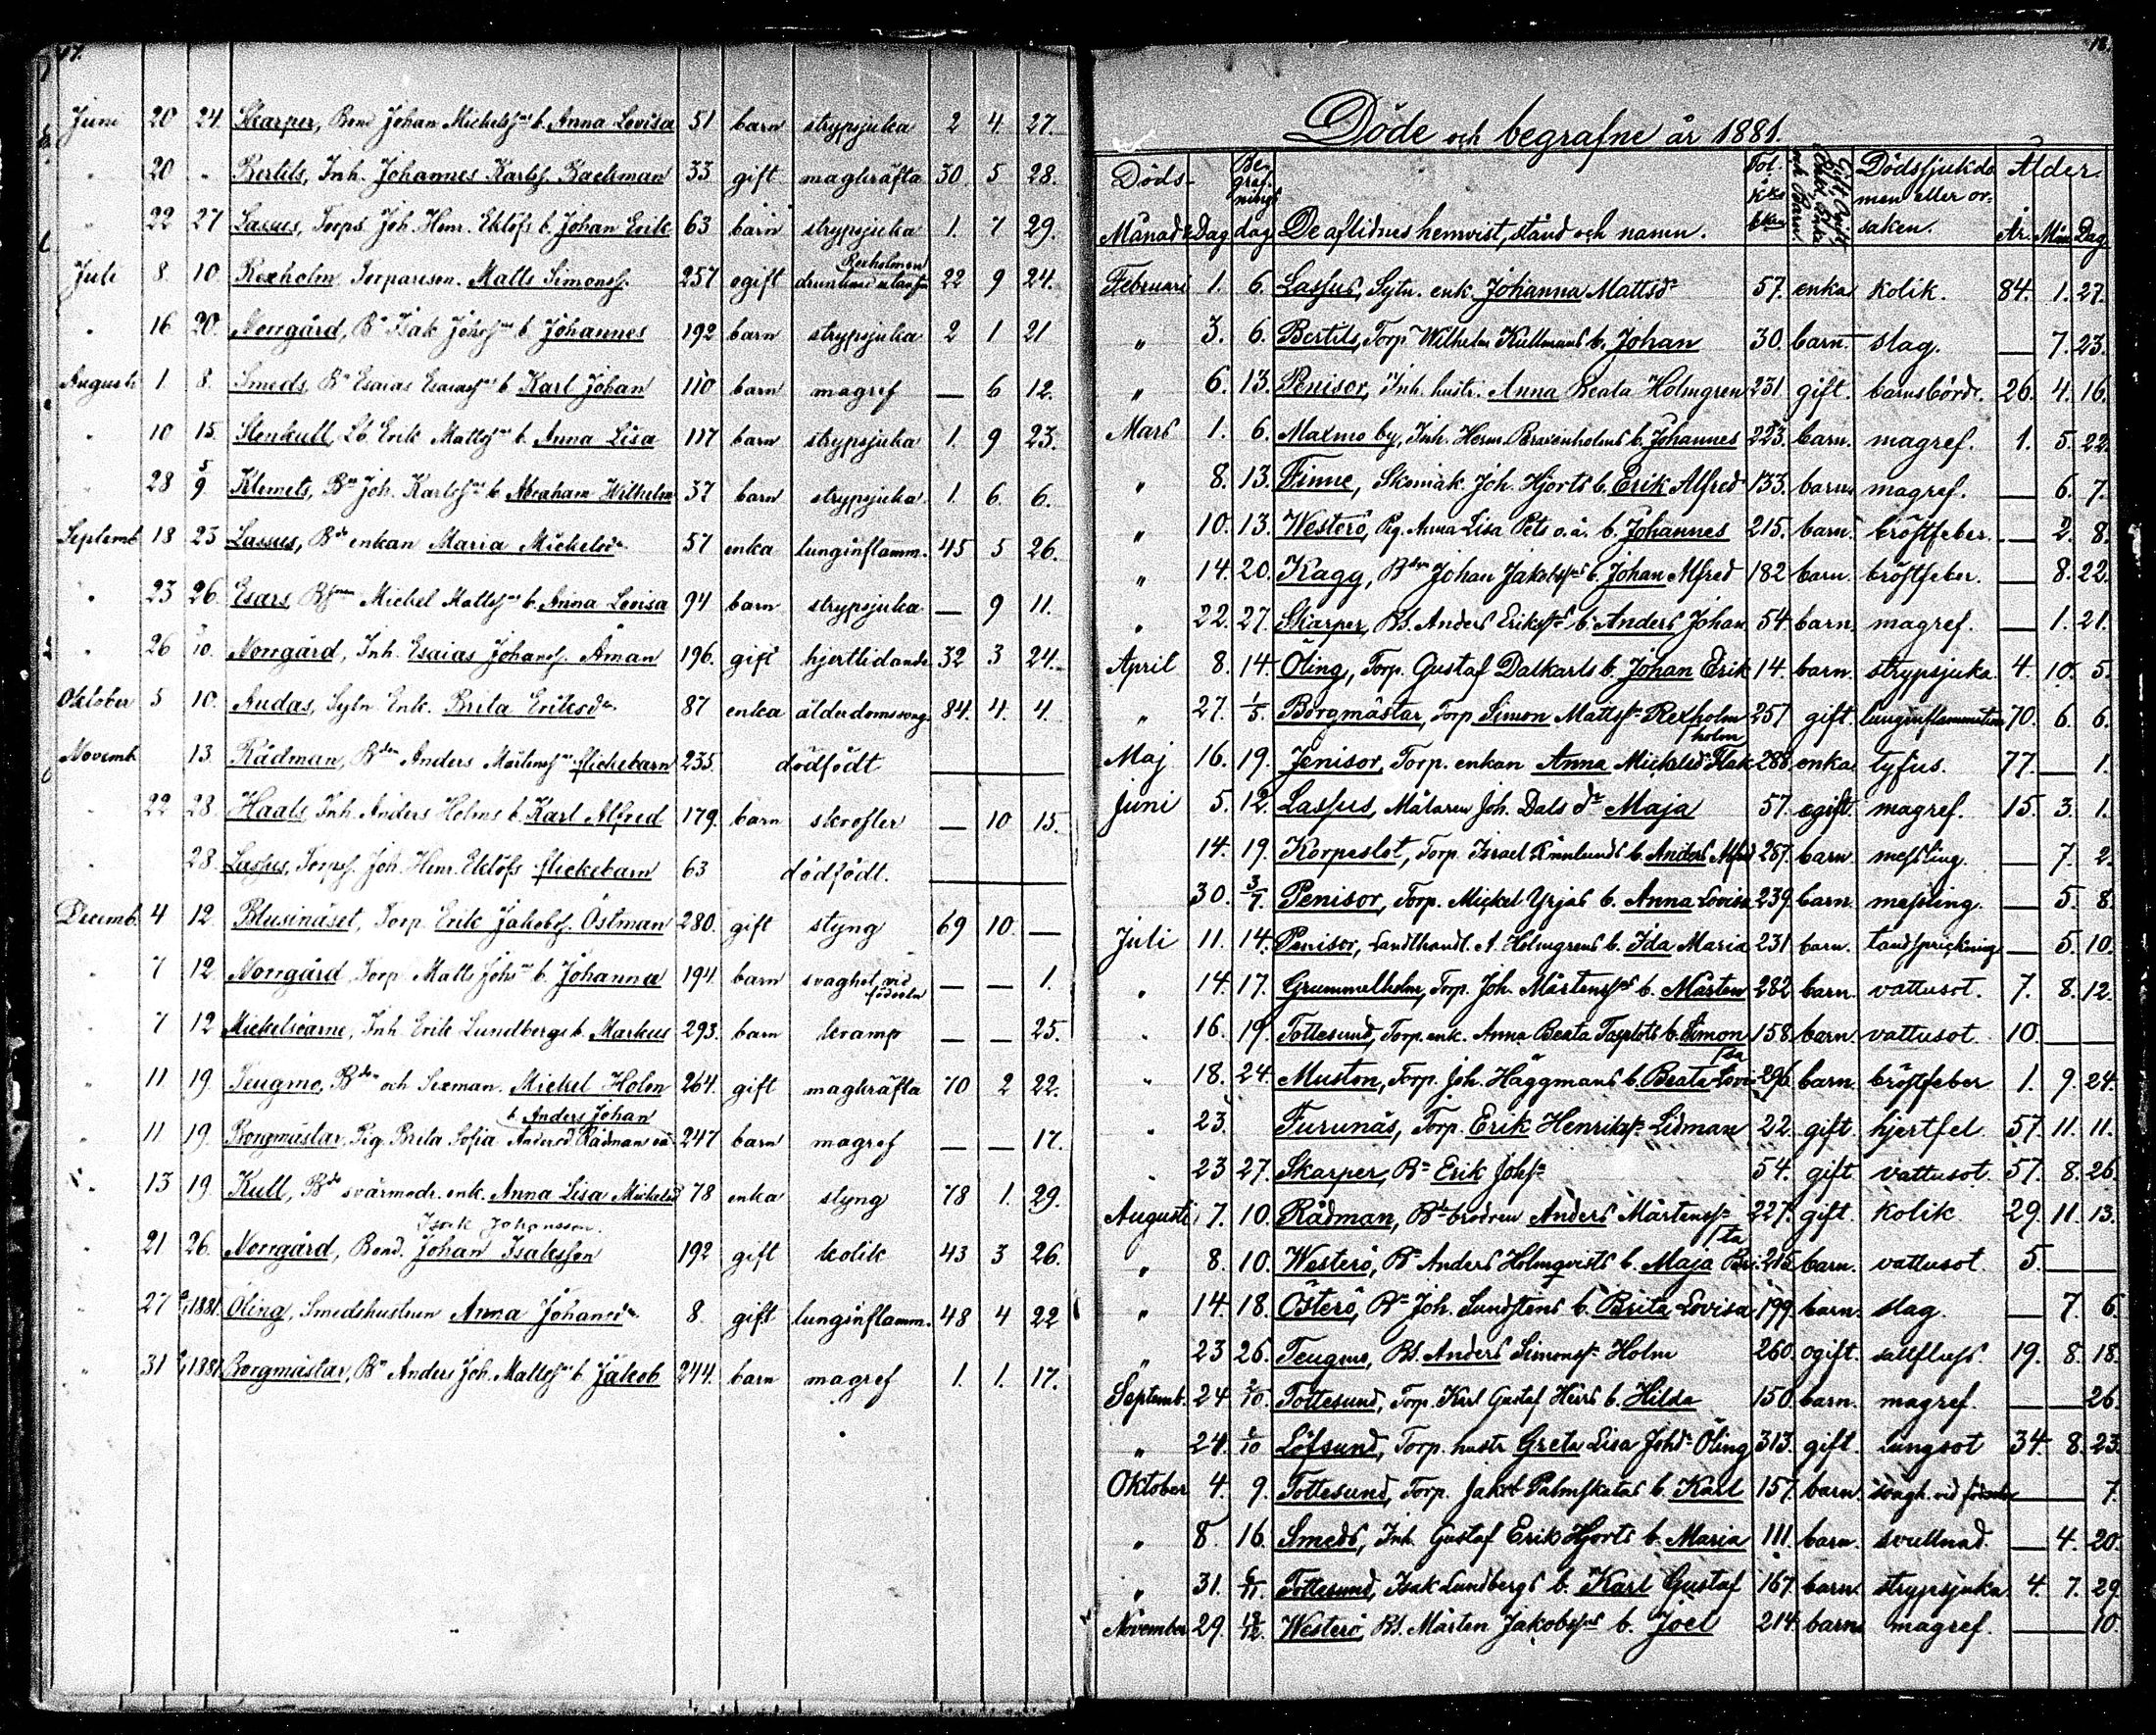 17.
Juni 20 24. Skarper, Bond Johan Michelss b. Anna Lovisa 51 barn strypsjuka 2 4. 27.
" 20 " Bertils, Inh. Johannes Karlss. Backman 33 gift magkräfta 30. 5 28.
" 22 27 Lassus, Torps. Joh. Henr. Eklöfs b. Johan Erik 63 barn strypsjuka 1. 7 29.
Rexholmen
Juli 8. 10. Rexholm Torpareson. Matts Simonss. 257 ogift drunknad utanför 22 9 24.
" 16 20. Norrgård, Bn Isak Johss b Johannes 192 barn strypsjuka 2 1 21
Augusti 1. 8. Smeds, Bn Esaias Esaiass b Karl Johan 110 barn magref — 6 12.
" 10 15. Stenkull, Lb. Erik Mattss b. Anna Lisa 117 barn strypsjuka 1. 9 23.
" 28 5/9 Klemets, Bn Joh. Karlss b Abraham Wilhelm 37 barn strypsjuka 1. 6. 6.
Septemb 18 23 Lassus, Bde enkan Maria Mickelsdr 57 enka lunginflamm. 45 5 26.
" 23 26. Esars, Michel Mattss b. Anna Lovisa 94 barn strypsjuka — 9 11.
" 26 3/10. Norrgård, Inh. Esaias Johanss. Åman 196. gift hjertlidande 32 3 24.
Oktober 5 10. Audas, Sytn Enk. Brita Eriksdr 87 enka ålderdomssvag. 84. 4. 4.
Novemb. 13. Rådman, Bden Anders Mårtenss flickebarn 235. dödfödt ———
" 22 28. Haals, Inh. Anders Holms b. Karl Alfred 179. barn skrofler — 10 15.
" 28. Lassus, Torps. Joh. Henr. Eklöfs flickebarn 63 dödfödt. ———
Decemb. 4 12. Blusinäset, Torp. Erik Jakobss. Östman 280. gift styng 69 10. —
" 7 12. Norrgård, Torp Matts Johs b. Johanna 194. barn svaghet vid födseln — — 1.
" 7 12 Mickelsöarne, Inh Erik Lundbergs b. Markus 293. barn kramp — — 25.
" 11 19 Teugmo, Bden och Sexman. Mickel Holm 264. gift magkräfta 70 2 22.
b. Anders Johan
" 11 19. Borgmästar, Pig. Brita Sofia Andersd. Rådmans oä 247 barn magref — — 17.
" 13 19. Kull, Bds svärmodr. enk. Anna Lisa Mickelsd 78 enka styng 78 1. 29.
Isak Johansson.
" 21 26. Norrgård, Bond. Johan Isaksson 192 gift kolik 43 3 26.
" 27 1881. Öling, Smedshustrun Anna Johansdr 8. gift lunginflamm. 48 4 22
" 31 1881. Borgmästar, Bn Anders Joh. Mattss b Jakob 244. barn magref 1. 1. 17.
18.
Döde och begrafne år 1881.
Döds- Begrafnings Fol. i kko boken Gift, Ogift, och Barn. Dödssjukdo- Ålder.
Månad Dag dag De aflidnes hemvist, stånd och namn. men eller or- saken. År. Mån Dag.
Februari 1. 6. Lassus, Sytn. enk. Johanna Mattsdr 57. enka kolik. 84. 1. 27.
" 3. 6. Bertils, Torp Wilhelm Kullmans b. Johan 30. barn. slag. — 7. 23.
" 6. 13. Penisor, Inh. hustr. Anna Beata Holmgren 231. gift. barnsbörd. 26. 4. 16.
Mars 1. 6. Maxmo by, Inh. Herm. Bravenholms b. Johannes 223. barn. magref. 1. 5. 22.
" 8. 13. Finne, Skomak. Joh. Hjorts b. Erik Alfred 133. barn magref. — 6. 7.
" 10. 13. Westerö, Pig. Anna Lisa Pets o.ä. b. Johannes 215. barn. bröstfeber. — 2. 8.
" 14. 20. Kagg, Bden Johan Jakobss b. Johan Alfred 182 barn. bröstfeber. — 8. 22.
" 22. 27. Skarper, Bs. Anders Erikss b. Anders Johan 54. barn. magref. — 1. 21.
April 8. 14. Öling, Torp. Gustaf Dalkarls b. Johan Erik 14. barn. strypsjuka 4. 10. 5.
" 27. 1/5. Borgmästar, Torp Simon Mattss Rexholm 257 gift. lunginflammation 70. 6. 6.
holm
Maj 16. 19. Jenisor, Torp. enkan Anna Mickelsd Flak 288. enka tyfus. 77. — 1.
Juni 5. 12. Lassus, Målaren Joh. Dals dr Maja 57. ogift. magref. 15. 3. 1.
14. 19. Korpeslot, Torp. Israel Rönnlunds b. Anders Alfred 287. barn messling. — 7. 2.
30. 3/7. Penisor, Torp. Mickel Yrjas b. Anna Lovisa 239. barn. messling. — 5. 8.
Juli 11. 14. Penisor, Landthandl. A. Holmgrens b. Ida Maria 231 barn. tandsprickning — 5. 10.
" 14. 17. Grummelholm, Torp. Joh. Mårtenss b. Mårten 282 barn. vattusot. 7. 8. 12.
" 16. 19. Tottesund, Torp. enk. Anna Beata b. Simon 158. barn. vattusot. 10. — —
sa
" 18. 24. Muston, Torp. Joh. Häggmans b. Beata Lovi- 296. barn. bröstfeber 1. 9. 24.
" 23. Furunäs, Torp. Erik Henrikss Lidman 22. gift. hjertfel 57. 11. 11.
" 23 27. Skarper, Bn Erik Johss 54. gift vattusot. 57. 8. 26.
Augusti 7. 10. Rådman, Bde brodren Anders Mårtenss 227. gift. kolik 29 11. 13.
ta
" 8. 10. Westerö, Bn Anders Holmqvists b. Maja Bri- 215. barn. vattusot 5. — —
" 14. 18. Österö, Bn Joh. Sundstens b. Brita Lovisa 199 barn. slag. — 7. 6.
" 23 26. Teugmo, Bs. Anders Simonss Holm 260. ogift. saltfluss. 19. 8. 18.
Septemb. 24 2/10. Tottesund, Torp. Karl Gustaf b. Hilda 150. barn. magref. — — 26.
" 24. 2/10 Löfsund, Torp. hustr. Greta Lisa Johsd Öling 313. gift. lungsot 34. 8. 23.
Oktober 4. 9. Tottesund, Torp. Jakob Palmskatas b. Karl 157. barn. svagh. vid födseln — — 7.
" 8. 16. Smeds, Inh. Gustaf Erik Hjorts b. Maria 111. barn. svullnad. — 4. 20.
" 31. 6/11. Tottesund, Isak Lundbergs b. Karl Gustaf 167. barn. strypsjuka 4. 7. 29.
November 29. Westerö, Bs. Mårten Jakobss b. Joel 214. barn magref. — — 10.